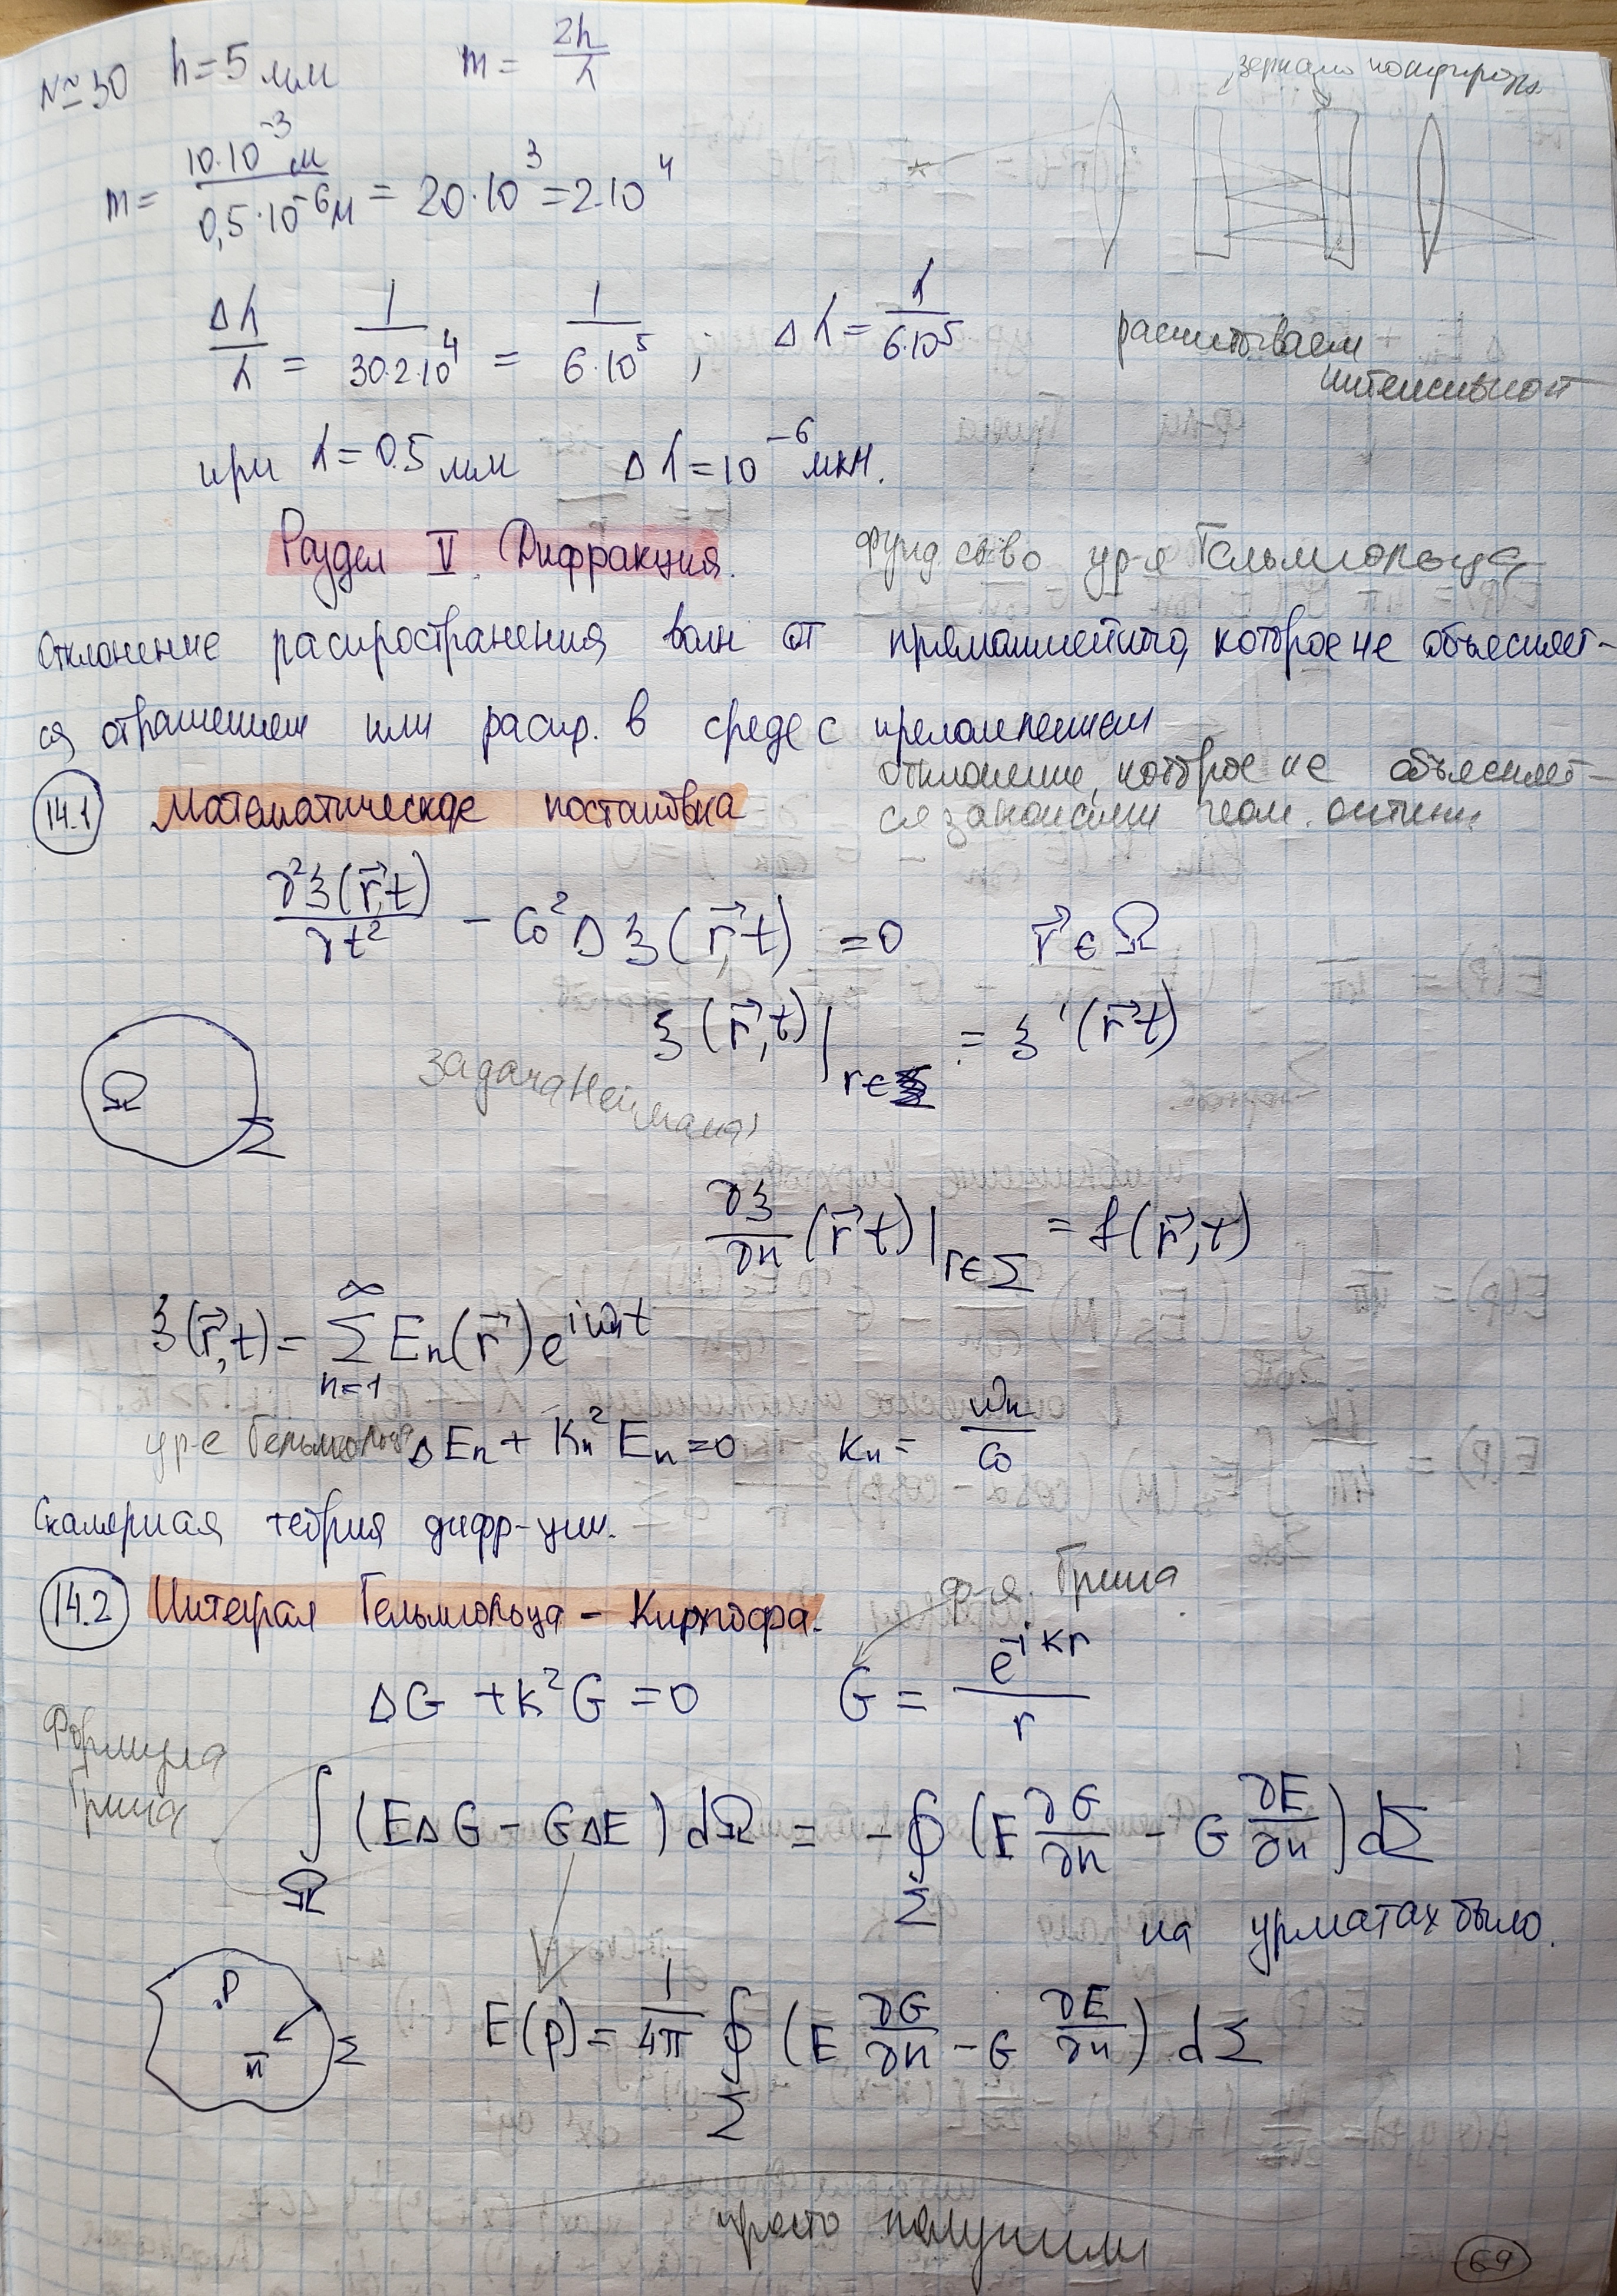 N≃30 h=5 мм m = 2h/λ
зеркало
m = 10·10⁻³ м / 0,5·10⁻⁶ м = 20·10³ = 2·10⁴
Δλ/λ = 1/(30·2·10⁴) = 1/(6·10⁵) ; Δλ = λ/(6·10⁵)
рассчитываем
интенсивност
при λ = 0.5 мкм Δλ = 10⁻⁶ мкм.
Раздел V. Дифракция.
фунд. св-во ур-я Гельмгольца
Отклонение распространения волн от прямолинейного, которое не объесняет-
ся отражением или распр. в среде с преломлением
отклонение, которое не объесняет-
ся законами геом. оптики
14.1 Математическая постановка
∂²ξ(r⃗,t)/∂t² − C₀²Δξ(r⃗,t) = 0 r⃗ ∈ Ω
ξ(r⃗,t)|r∈Σ = ξ'(r⃗ t)
Ω
Σ
задача Неймана
∂ξ/∂n (r⃗ t)|r∈Σ = f(r⃗,t)
ξ(r⃗,t) = ∑ₙ₌₁^∞ Eₙ(r⃗) e^{iωₙt}
ур-е Гельмгольца ΔEₙ + Kₙ²Eₙ = 0 Kₙ = ωₙ/C₀
Скалярная теория дифр-ции.
14.2 Интеграл Гельмгольца – Кирхгофа.
ф-я Грина
ΔG + k²G = 0 G = e^{-ikr}/r
Формула
Грина
∫_Ω (EΔG − GΔE) dΩ = − ∮_Σ (E ∂G/∂n − G ∂E/∂n) dΣ
на урматах было.
P
n̄
Σ
E(p) = 1/4π ∮_Σ (E ∂G/∂n − G ∂E/∂n) dΣ
просто получили
69